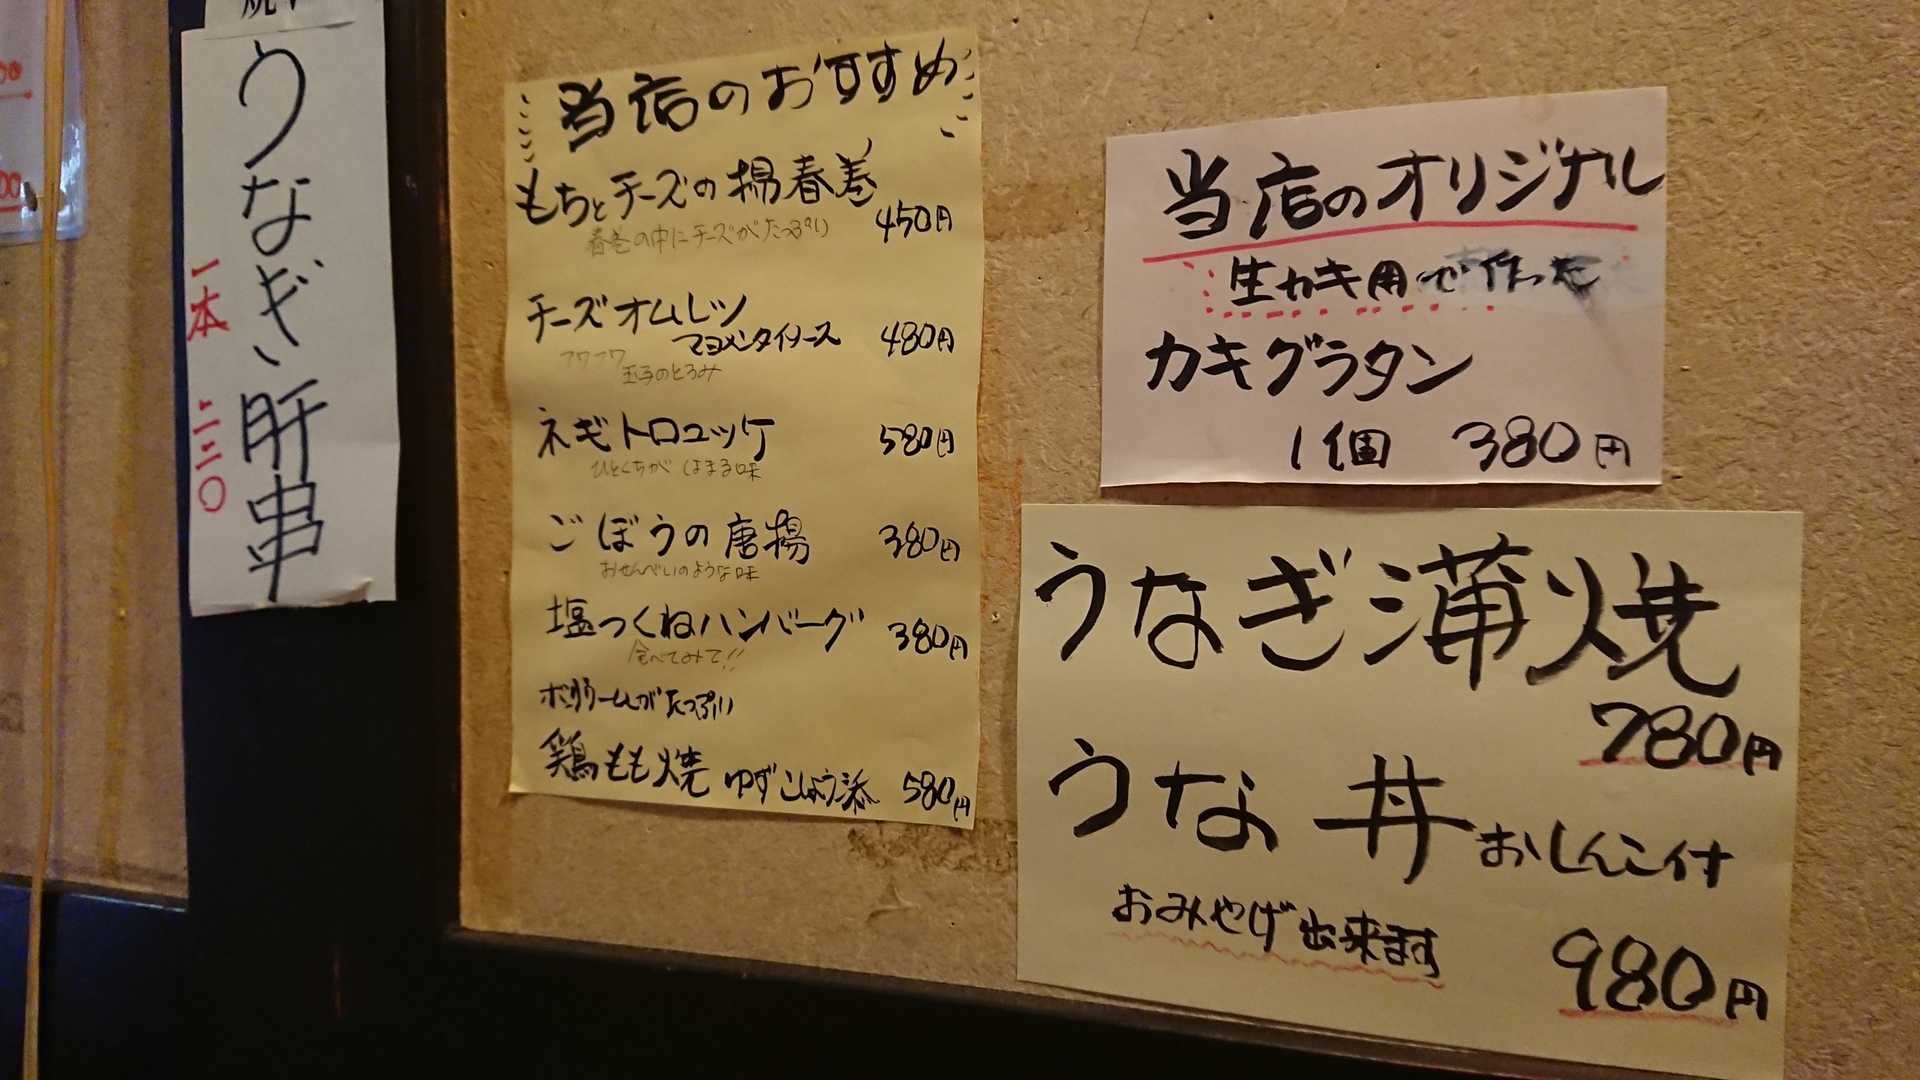 うなぎ肝串
一本 二三〇
当店のおすすめ
もちとチーズの揚春巻
450円
春巻の中にチーズがたっぷり
チーズオムレツ
マヨメンタイソース 480円
フワフワ
玉子のとろみ
ネギトロユッケ 580円
ひとくちが はまる味
ごぼうの唐揚 380円
おせんべいのような味
塩つくねハンバーグ 380円
食べてみて!!
ボリュームがたっぷり
鶏もも焼 ゆずこしょう添 580円
当店のオリジナル
生カキ用で作った
カキグラタン
1個 380円
うなぎ蒲焼
780円
うな丼 おしんこ付
おみやげ出来ます
980円